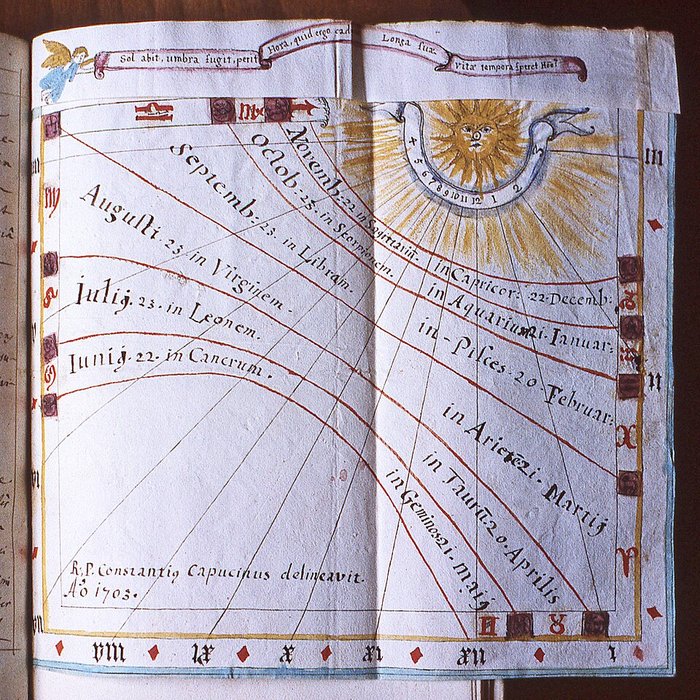 Sol abit, umbra fugit, perit
Hora, quid ergo cad
Longa suæ
vitæ tempora speret
5 6 7 8 9 10 11 12 1 2
Novemb: 22 in Sagittariũ.
Octob: 23. in Scorpionem.
Septemb: 23. in Libram.
Augusti. 23. in Virginem.
Iulij. 23. in Leonem.
Iunij. 22. in Cancrum.
in Capricor: 22. Decemb:
in Aquarium 21. Ianuar:
in - Pisces. 20. Februar:
in Arietẽ 21. Martij
in Taurũ 20. Aprilis
in Geminos 21. maij
III
II
R. P. Constantiꝰ Capucinus delineavit.
Aõ 1703.
VIII IX X XI XII I